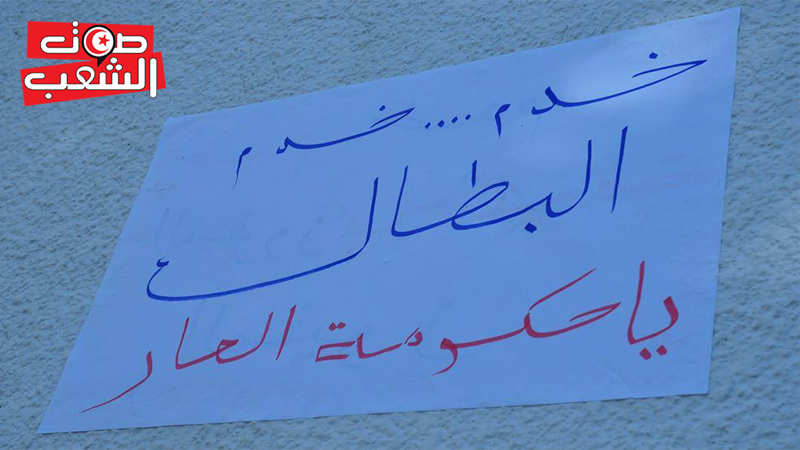 صوت
الشعب
خدم .... خدم
البطال
يا حكومة العار